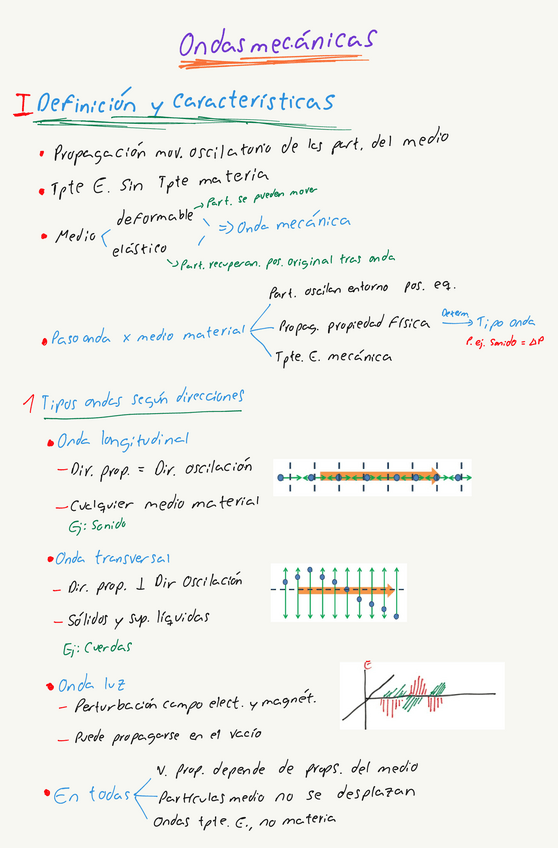 Ondas mecánicas
I Definición y Características
• Propagación mov. oscilatorio de las part. del medio
• Tpte E. sin Tpte materia
• Medio
deformable → Part. se pueden mover
elástico
⇒ Onda mecánica
→ Part. recuperan. pos. original tras onda
• Paso onda x medio material
Part. oscilan entorno pos. eq.
Propag. propiedad física
Determ
→ Tipo onda
P. ej. Sonido = ΔP
Tpte. E. mecánica
1 Tipos ondas según direcciones
• Onda longitudinal
— Dir. prop. = Dir. oscilación
— Cualquier medio material
Ej: Sonido
• Onda transversal
— Dir. prop. ⊥ Dir Oscilación
— Sólidos y sup. líquidas
Ej: Cuerdas
• Onda luz
— Perturbación campo elect. y magnét.
— Puede propagarse en el vacío
E
• En todas
V. prop. depende de props. del medio
Partículas medio no se desplazan
Ondas tpte. E., no materia